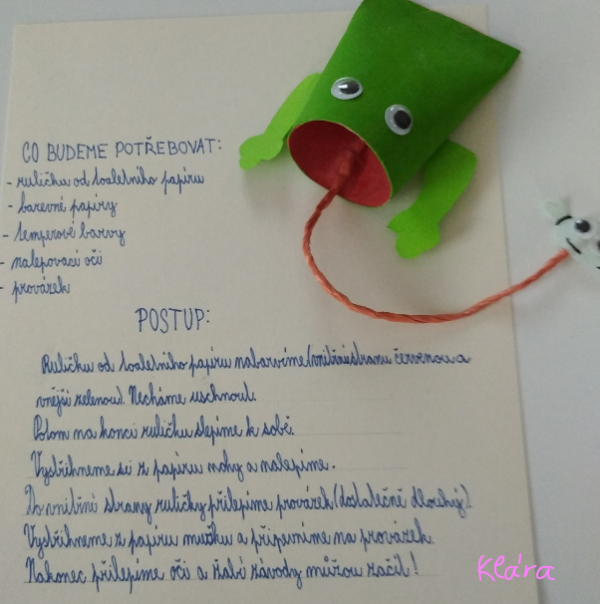 CO BUDEME POTŘEBOVAT:
- ruličku od toaletního papíru
- barevné papíry
- temperové barvy
- nalepovací oči
- provázek
POSTUP:
Ruličku od toaletního papíru nabarvíme (vnitřní stranu červenou a
vnější zelenou). Necháme uschnout.
Potom na konci ruličku slepíme k sobě.
Vystřihneme si z papíru nohy a nalepíme.
Do vnitřní strany ruličky přilepíme provázek (dostatečně dlouhý).
Vystřihneme z papíru mušku a připevníme na provázek.
Nakonec přilepíme oči a žabí závody můžou začít!
Klára